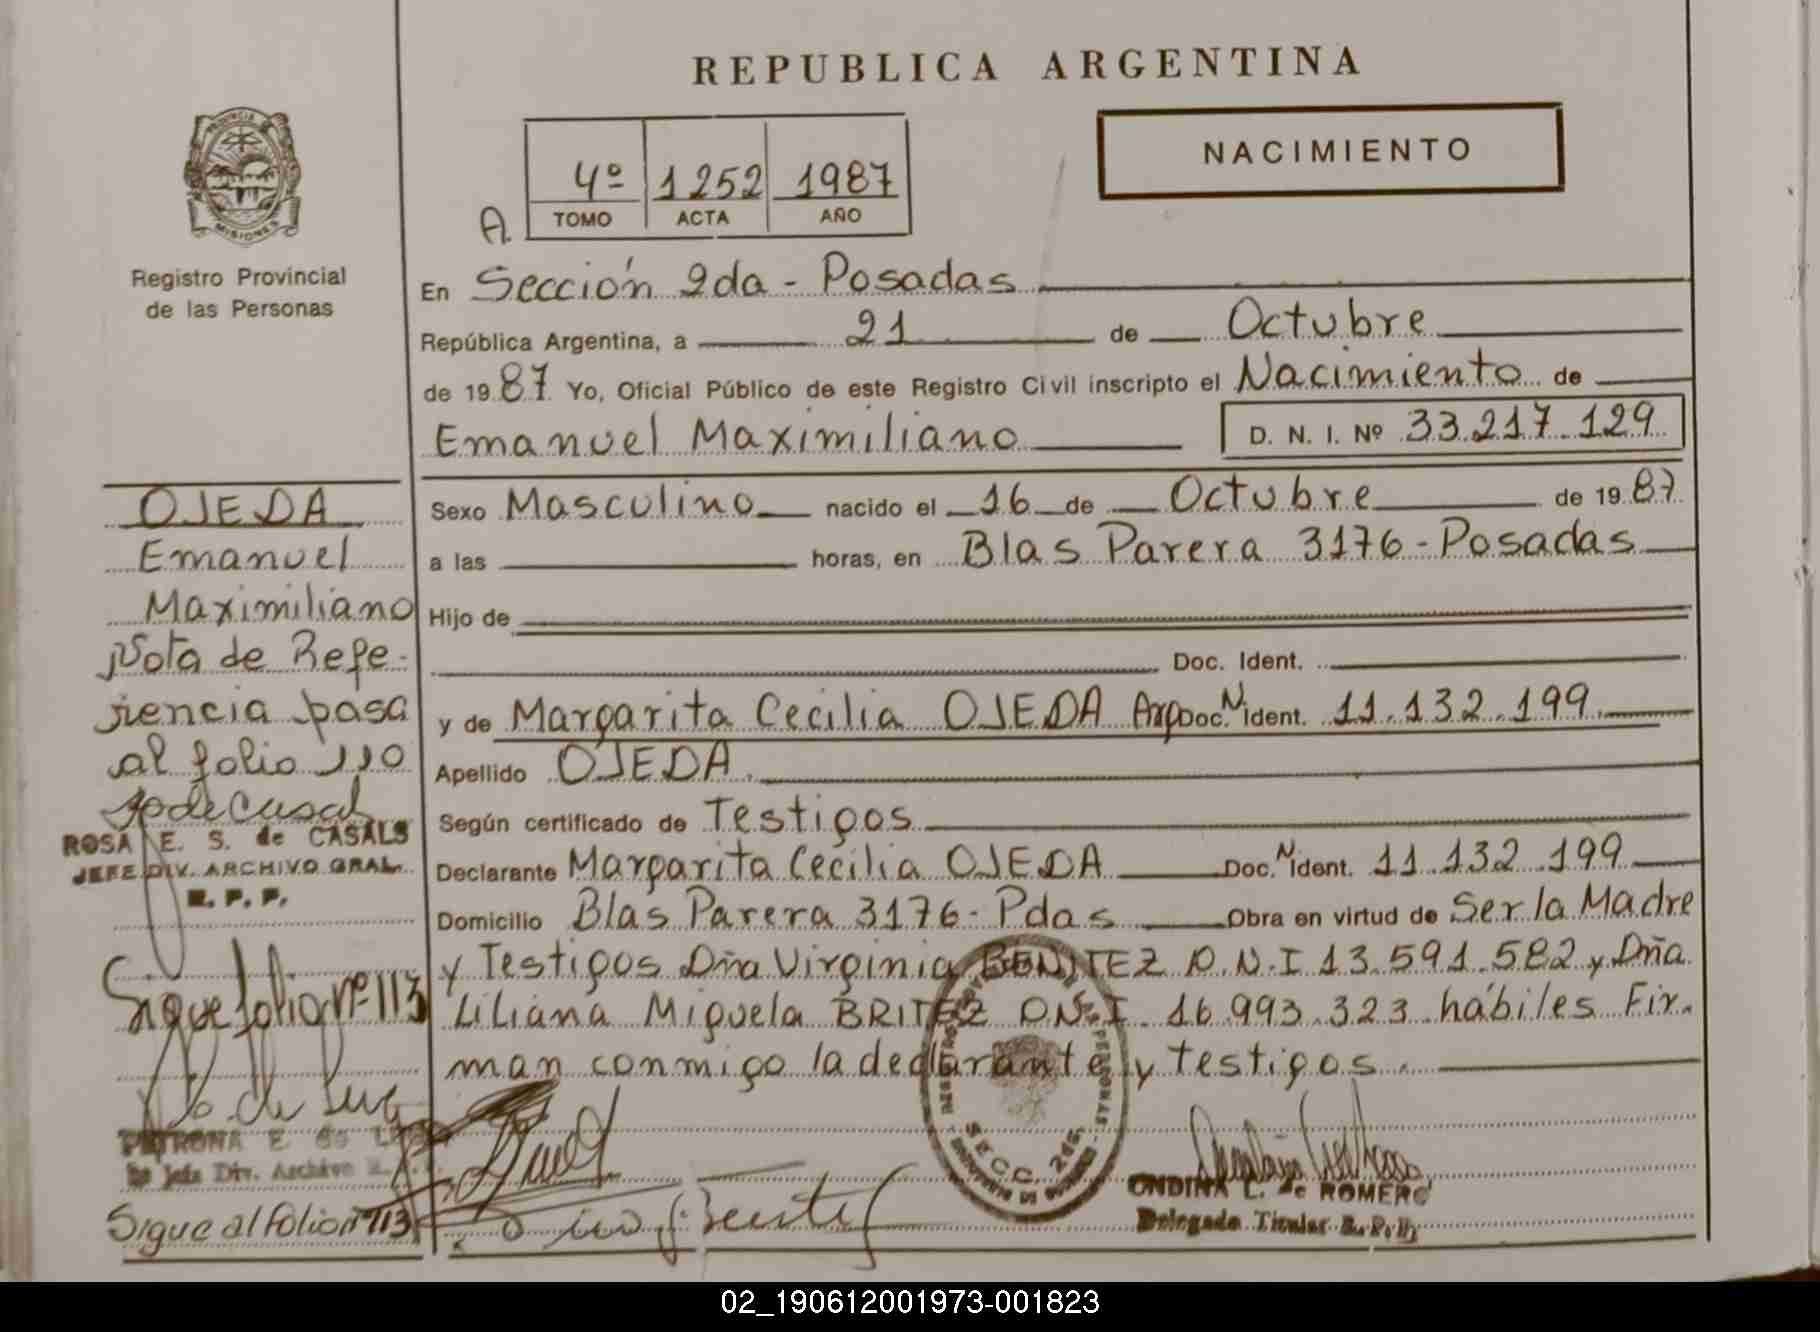 REPUBLICA ARGENTINA
NACIMIENTO
A
4º 1252 1987
TOMO ACTA AÑO
PROVINCIA DE
MISIONES
Registro Provincial
de las Personas
En Sección 2da - Posadas
República Argentina, a 21 de Octubre
de 1987 Yo, Oficial Público de este Registro Civil inscripto el Nacimiento de
Emanuel Maximiliano D. N. I. Nº 33.217.129
Sexo Masculino nacido el 16 de Octubre de 1987
a las horas, en Blas Parera 3176 - Posadas
Hijo de
Doc. Ident.
y de Margarita Cecilia OJEDA Arg Doc. N Ident. 11.132.199
Apellido OJEDA
Según certificado de Testigos
Declarante Margarita Cecilia OJEDA Doc. N Ident. 11.132.199
Domicilio Blas Parera 3176 - Pdas Obra en virtud de Ser la Madre
y Testigos Dña Virginia BENITEZ D.N.I 13.591.582 y Dña
Liliana Miguela BRITEZ D.N.I. 16.993.323 hábiles Fir-
man conmigo la declarante y testigos.
OJEDA
Emanuel
Maximiliano
Nota de Refe-
rencia pasa
al folio 110
ROSA E. S. de CASALS
JEFE DIV. ARCHIVO GRAL.
R. P. P.
Sigue folio nº 113
PETRONA E. de
Jefe Div. Archivo
Sigue al folio nº 113
SECC. 2da.
ONDINA L. de ROMERO
Delegada Titular R.P.P.
02_190612001973-001823